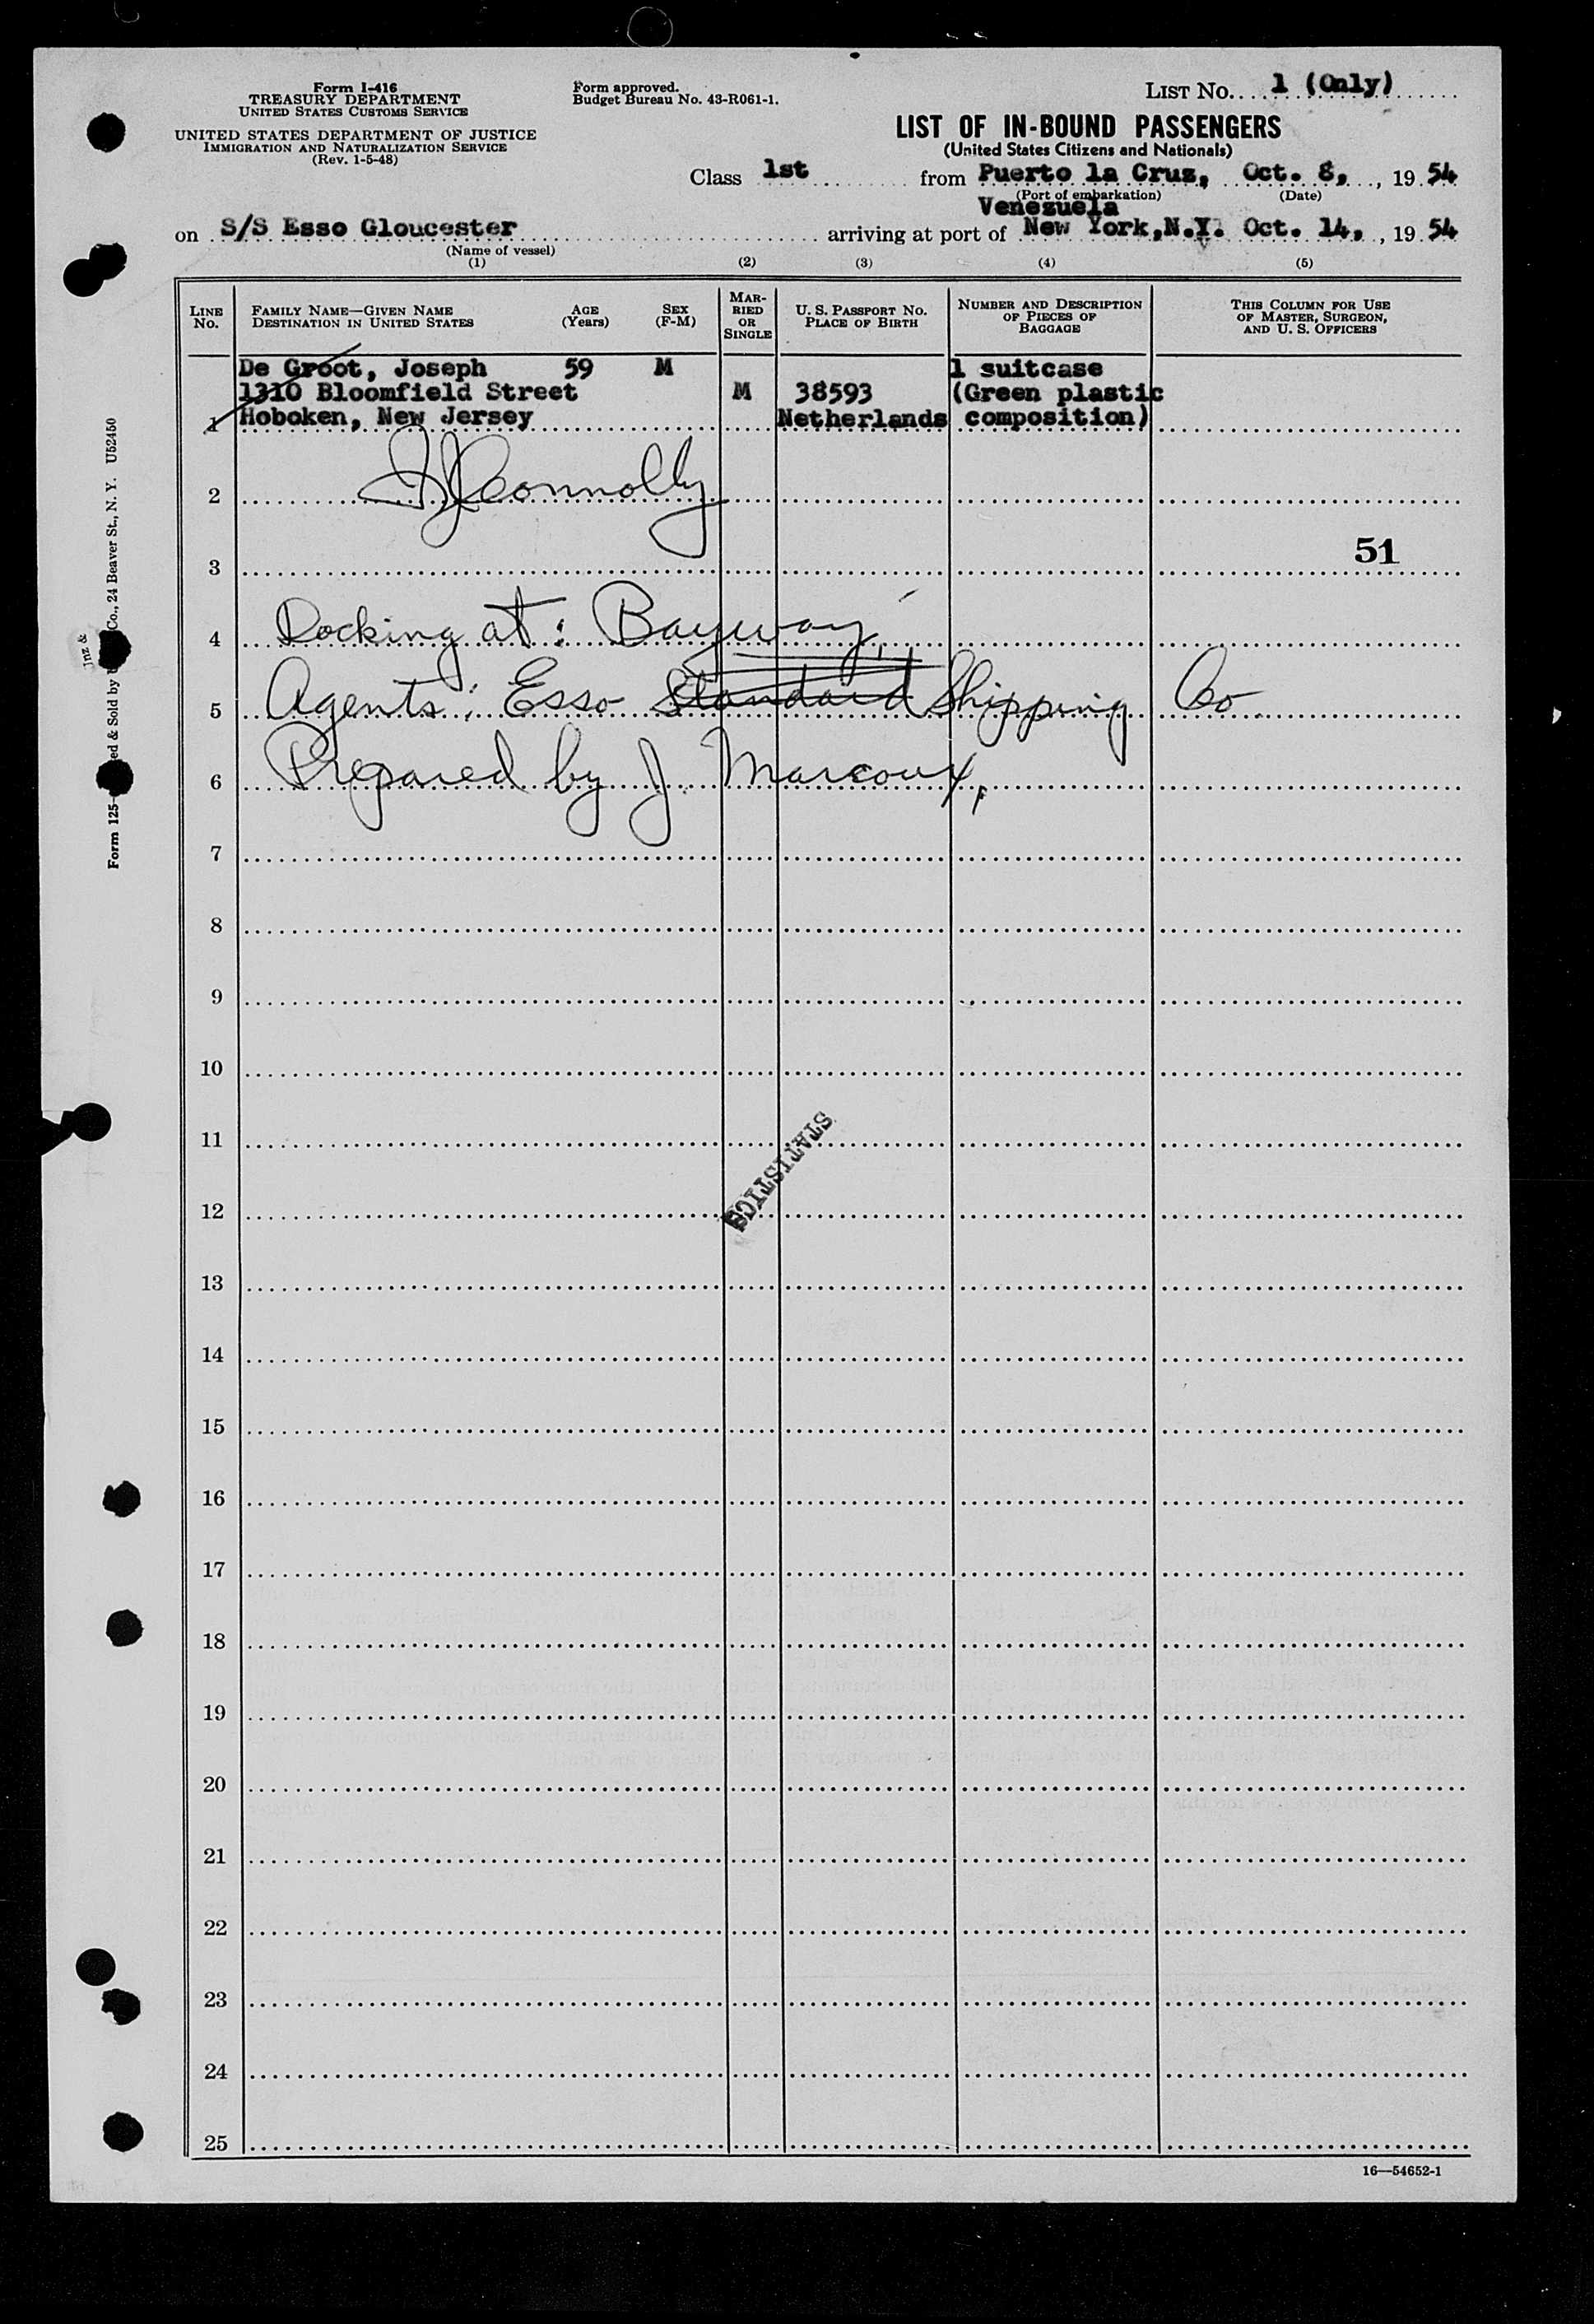 Form I-416
TREASURY DEPARTMENT
UNITED STATES CUSTOMS SERVICE
UNITED STATES DEPARTMENT OF JUSTICE
IMMIGRATION AND NATURALIZATION SERVICE
(Rev. 1-5-48)
Form approved.
Budget Bureau No. 43-R061-1.
LIST No. 1 (Only)
LIST OF IN-BOUND PASSENGERS
(United States Citizens and Nationals)
Class 1st from Puerto la Cruz, Oct. 8, , 19 54
(Port of embarkation) (Date)
Venezuela
on S/S Esso Gloucester arriving at port of New York, N.Y. Oct. 14, , 19 54
(Name of vessel)
(1) (2) (3) (4) (5)
LINE No.
FAMILY NAME—GIVEN NAME
DESTINATION IN UNITED STATES
AGE (Years)
SEX (F-M)
MARRIED OR SINGLE
U. S. PASSPORT No.
PLACE OF BIRTH
NUMBER AND DESCRIPTION OF PIECES OF BAGGAGE
THIS COLUMN FOR USE OF MASTER, SURGEON, AND U. S. OFFICERS
De Groot, Joseph 59 M 1 suitcase
1310 Bloomfield Street M 38593 (Green plastic
1 Hoboken, New Jersey Netherlands composition)
2 Connolly
3 51
4 Docking at: Bayway,
5 Agents: Esso Standard Shipping Co
6 Prepared by J. Marcoux,
7
8
9
10
11
STATISTICS
12
13
14
15
16
17
18
19
20
21
22
23
24
25
16—54652-1
Form 125- ed & Sold by Co., 24 Beaver St., N. Y. U52450